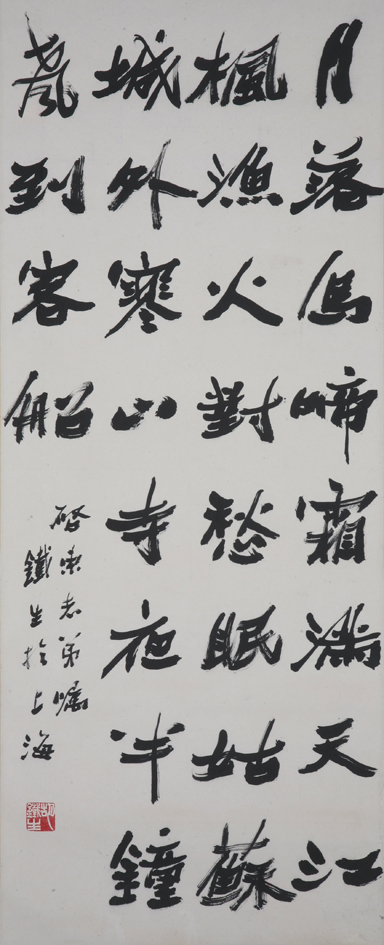 月落烏啼霜滿天江
楓漁火對愁眠姑蘇
城外寒山寺夜半鐘
聲到客船
啓東老弟囑
鐵生於上海